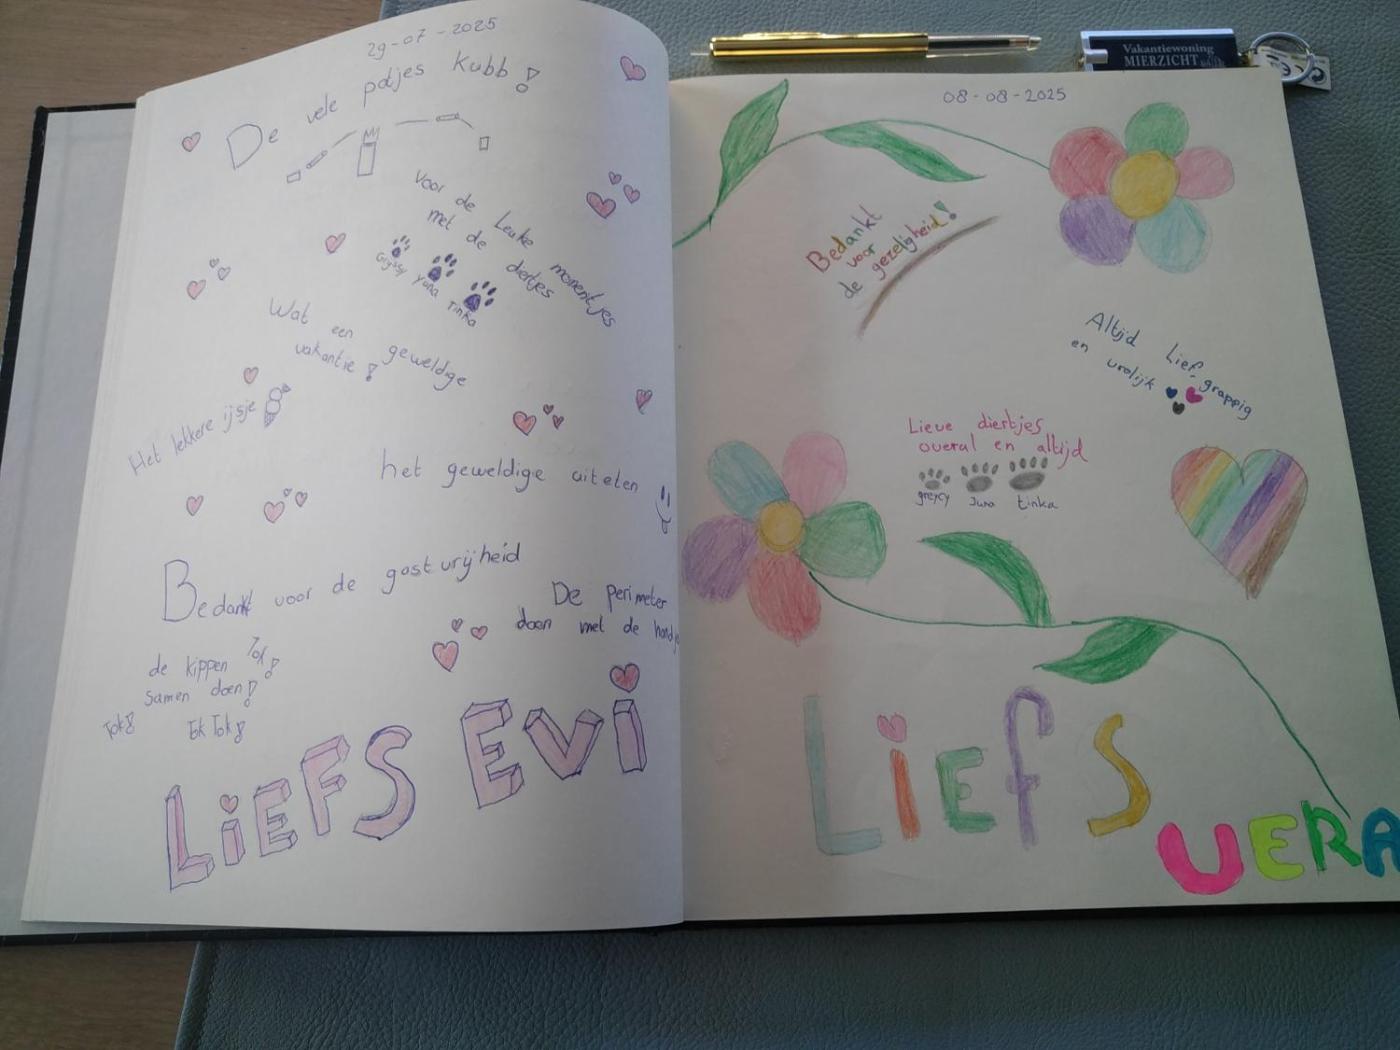 29-07-2025
De vele potjes Kubb!
Voor de Leuke momentjes
met de diertjes
Greysy Yuna Tinka
Wat een geweldige
vakantie!
Het lekkere ijsje
het geweldige uiteten
Bedankt voor de gastvrijheid
De perimeter
doen met de hondjes
de kippen Tok!
samen doen!
Tok! Tok Tok!
LiEFS Evi
Vakantiewoning
MIERZICHT
08-08-2025
Bedankt
voor
de gezelligheid!
Altijd Lief, grappig
en vrolijk
Lieve diertjes
overal en altijd
greycy Juna tinka
LiEfS
VERA